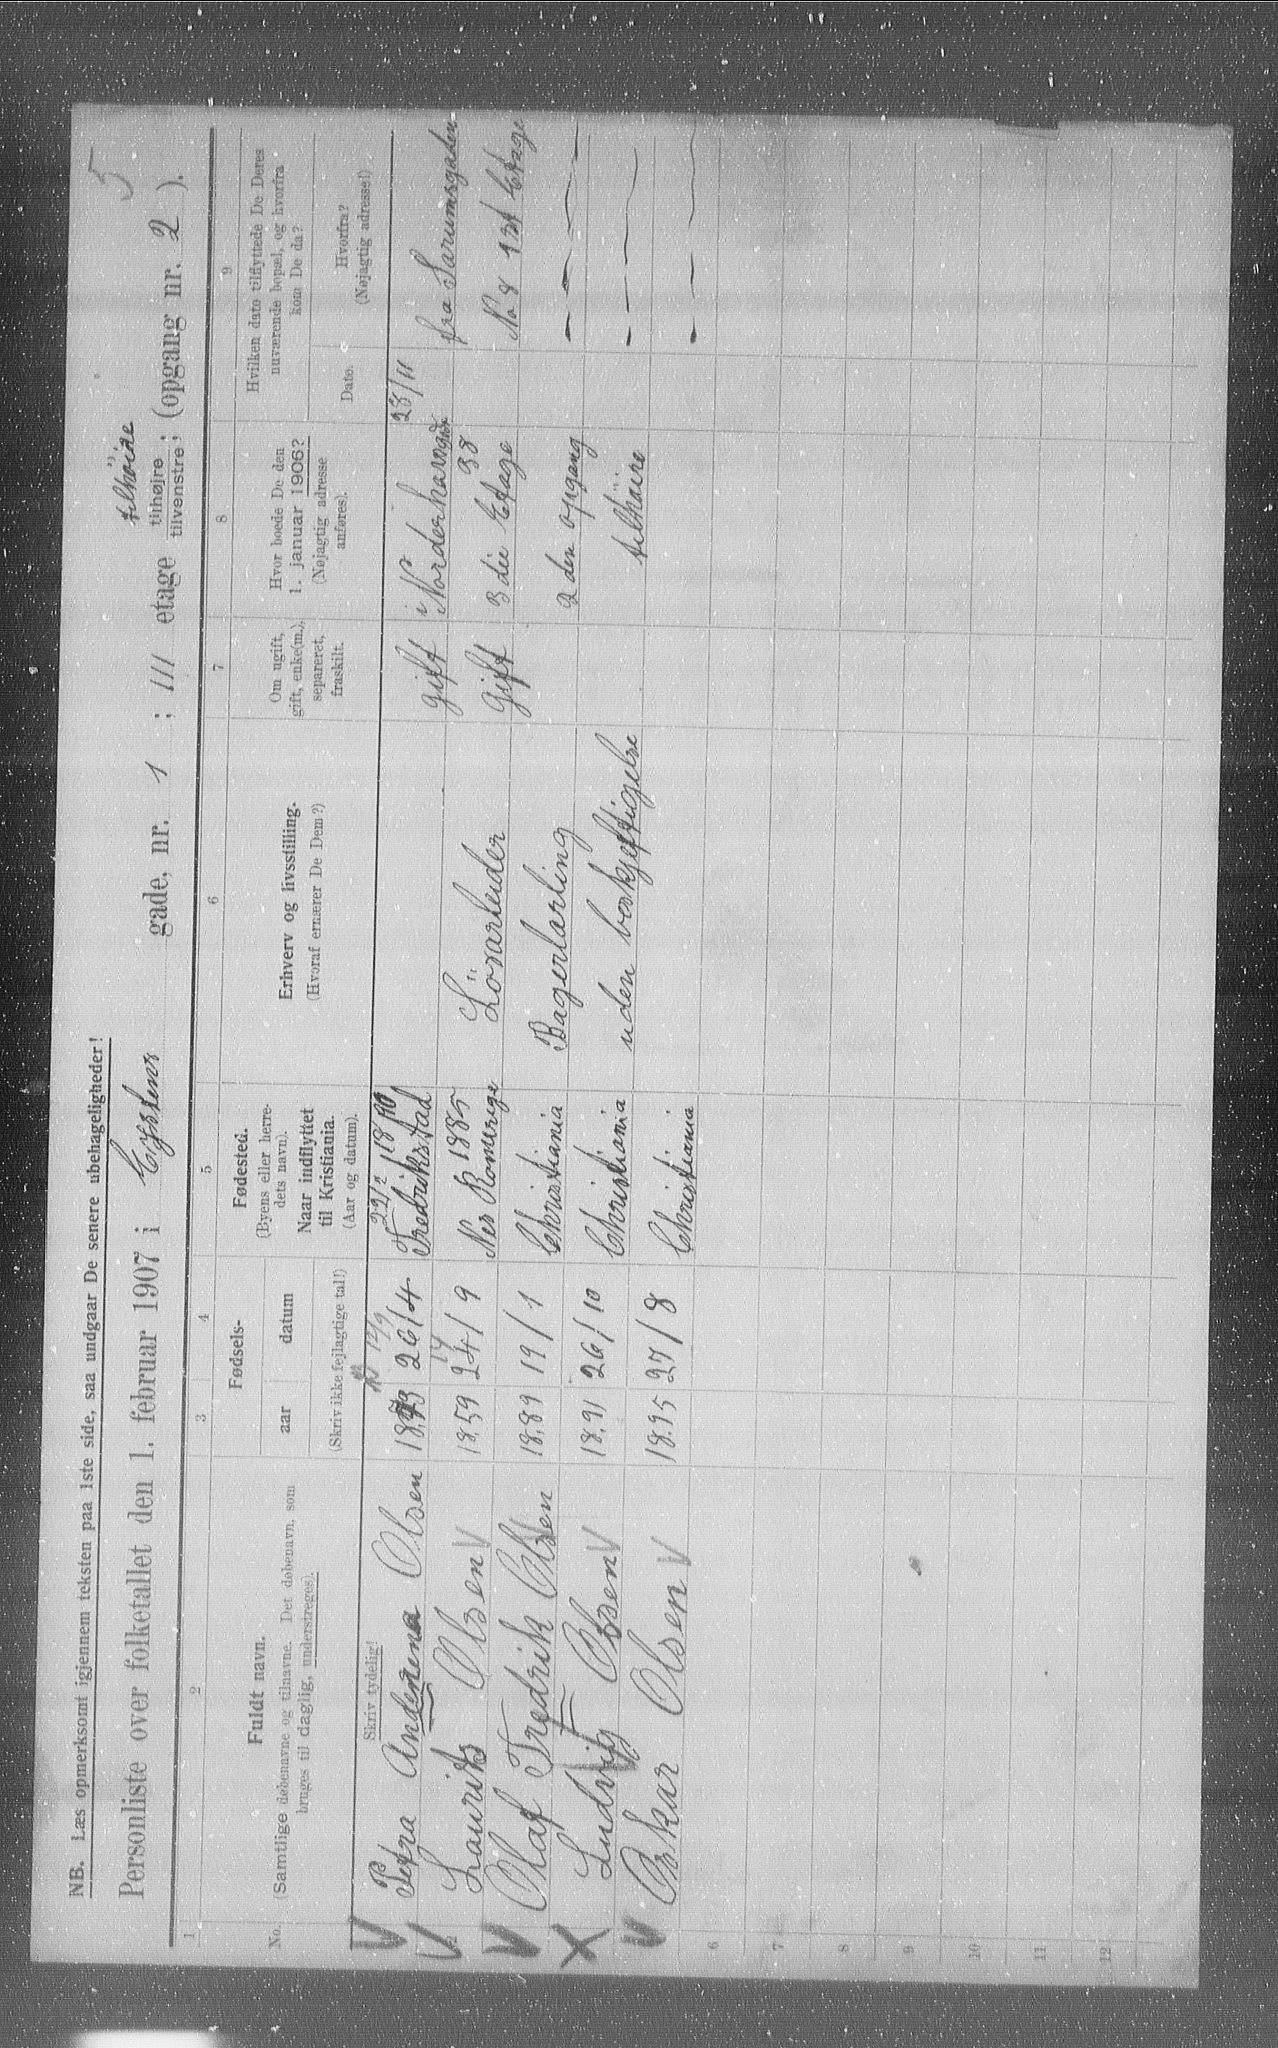 5
NB. Læs opmerksomt igjennem teksten paa 1ste side, saa undgaar De senere ubehageligheder!
Personliste over folketallet den 1. februar 1907 i Eyslens gade, nr. 1 ; III etage tilhøjre tilvenstre ; (opgang nr. 2 ).
tilhöire
1 2 3 4 5 6 7 8 9
No.
Fuldt navn.
(Samtlige døbenavne og tilnavne. Det døbenavn, som
bruges til daglig, understreges).
Skriv tydelig!
Fødsels-
aar datum
(Skriv ikke fejlagtige tal!)
Fødested.
(Byens eller herre-
dets navn).
Naar indflyttet
til Kristiania.
(Aar og datum).
Erhverv og livsstilling.
(Hvoraf ernærer De Dem?)
Om ugift,
gift, enke(m.),
separeret,
fraskilt.
Hvor boede De den
1. januar 1906?
(Nøjagtig adresse
anføres).
Hvilken dato tilflyttede De Deres
nuværende bopæl, og hvorfra
kom De da?
Dato.
Hvorfra?
(Nøjagtig adresse!)
Petra Andenena Olsen 26/4 Fredrikstad gift i Norderhovgd 28/11 fra Sarumsgaden
38
2 Laurits Olsen V 1859 24/9 1885 Nes Romerige Lösarbeider gift 3die Etage No 8 1st Etage
Olaf Fredrik Olsen 1889 19/1 Christiania Bagerlærling 2den opgang – – –
Ludvig F Olsen V 1891 26/10 Christiania uden beskjeftigelse tilhöire – – –
Oskar Olsen V 1895 27/8 Christiania – – –
6
7
8
9
10
11
12